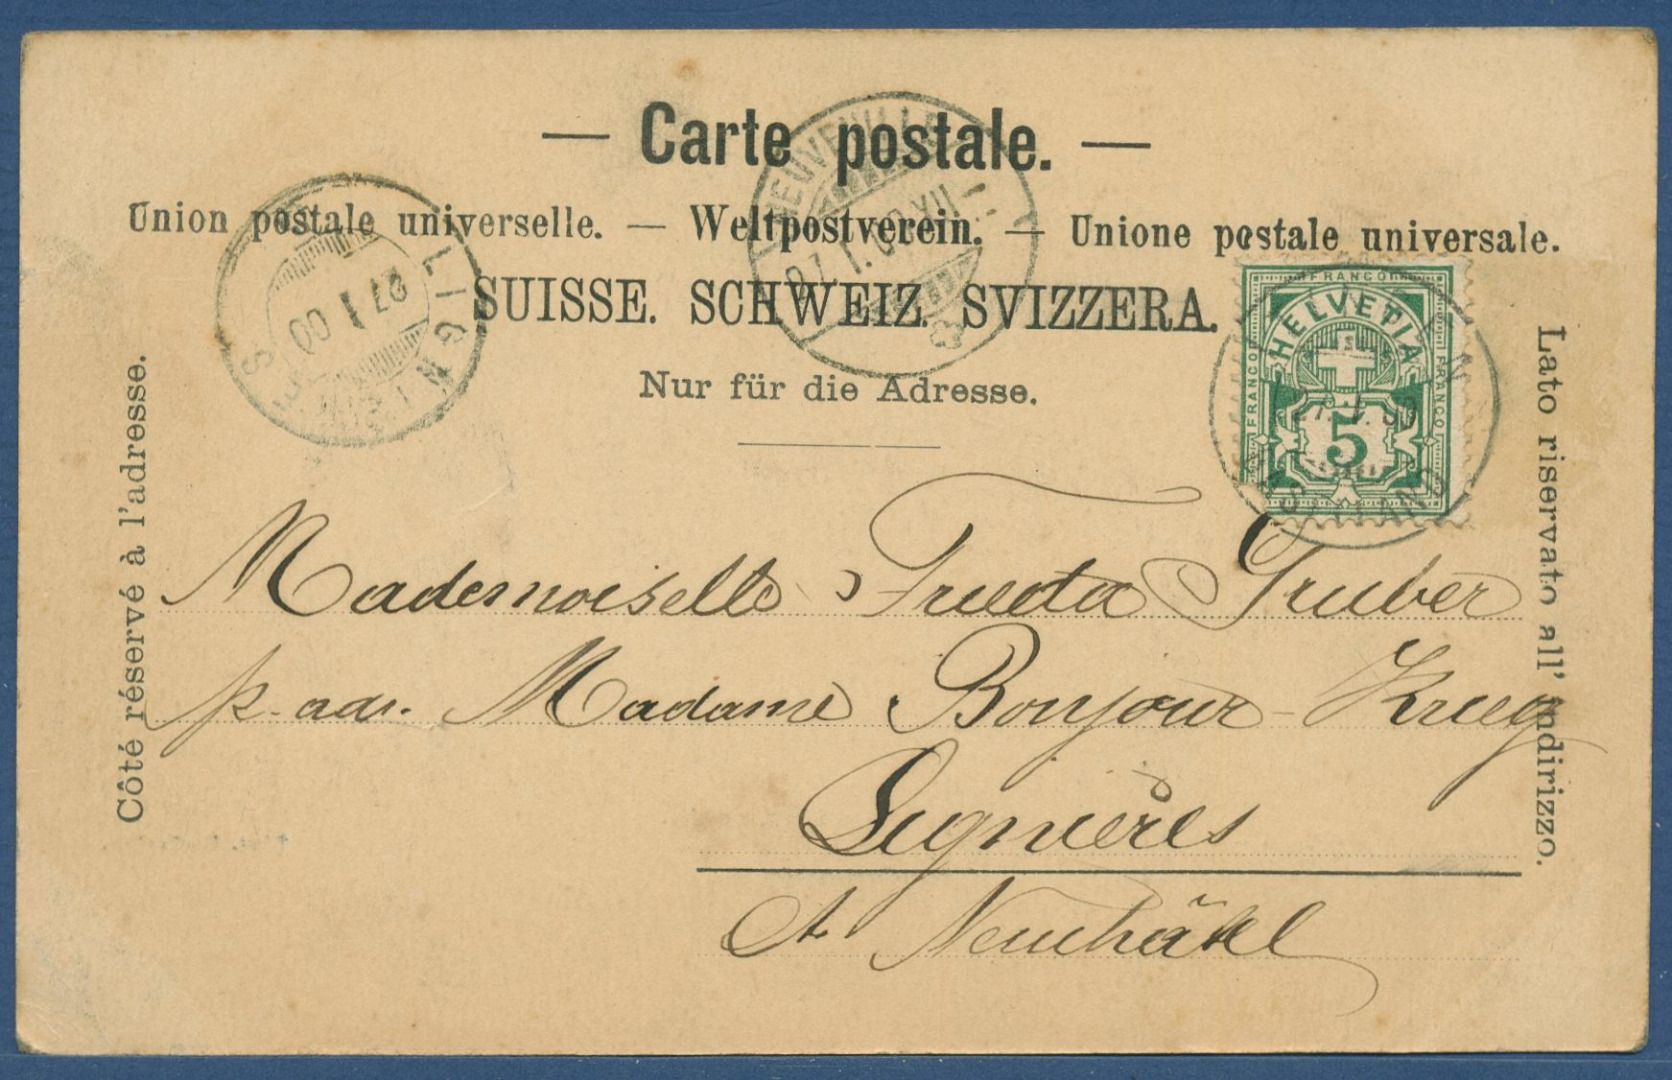 — Carte postale. —
Union postale universelle. — Weltpostverein. — Unione postale universale.
SUISSE. SCHWEIZ. SVIZZERA.
Nur für die Adresse.
Côté réservé à l'adresse.
Lato riservato all' indirizzo.
NEUVEVILLE
27.I.00.VII
LIGNIÈRES
27 I 00
FRANCO
HELVETIA
FRANCO
FRANCO
5
Mademoiselle Frieda Gruber
p. adr. Madame Bonjour-Krieg
Lignières
Ct Neuchâtel